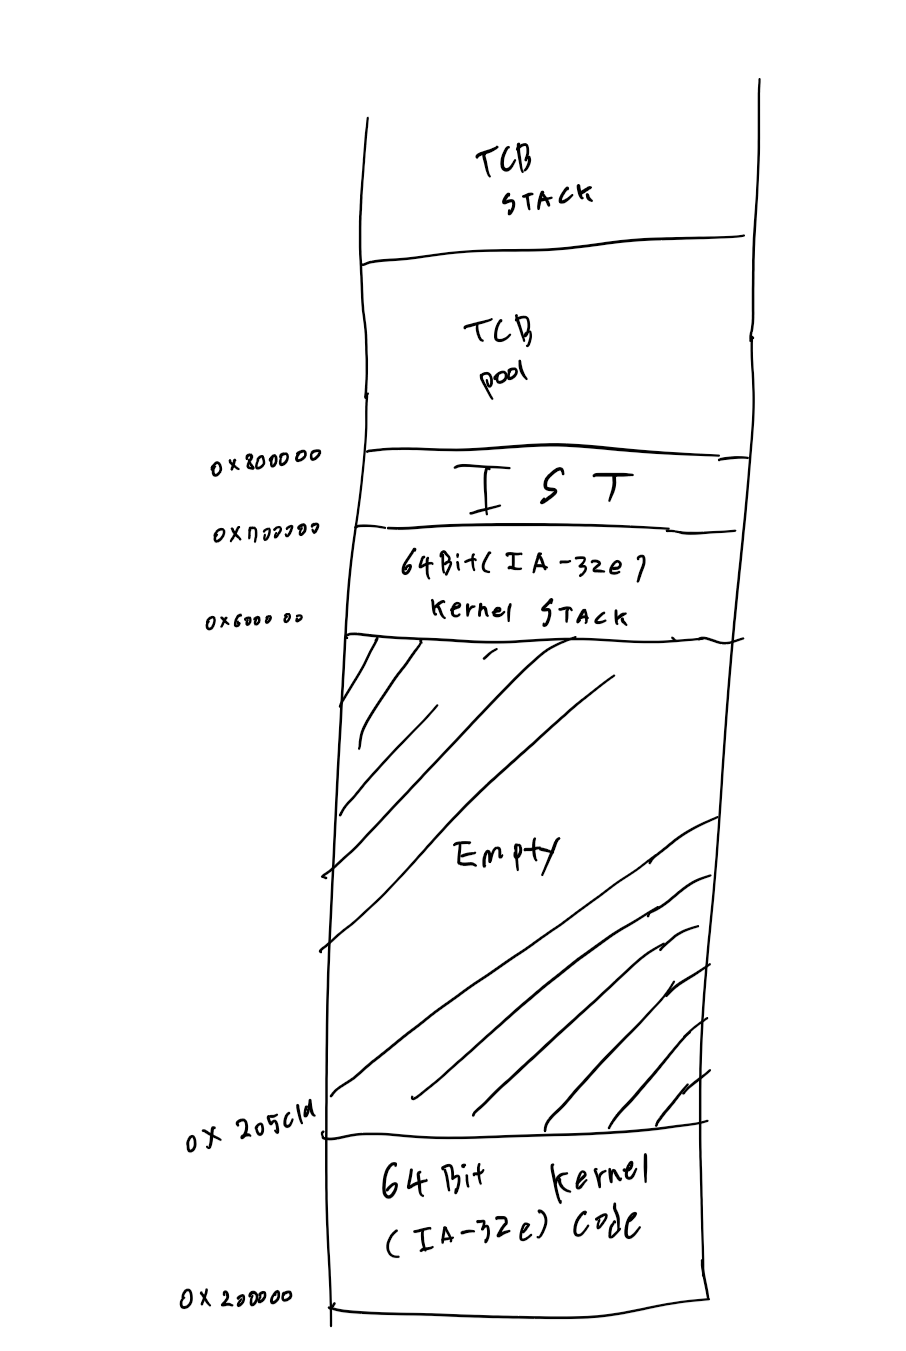 TCB
STACK
TCB
pool
0x800000
IST
0x700000
64Bit(IA-32e)
kernel STACK
0x600000
Empty
0x205c1d
64Bit kernel
(IA-32e) code
0x200000